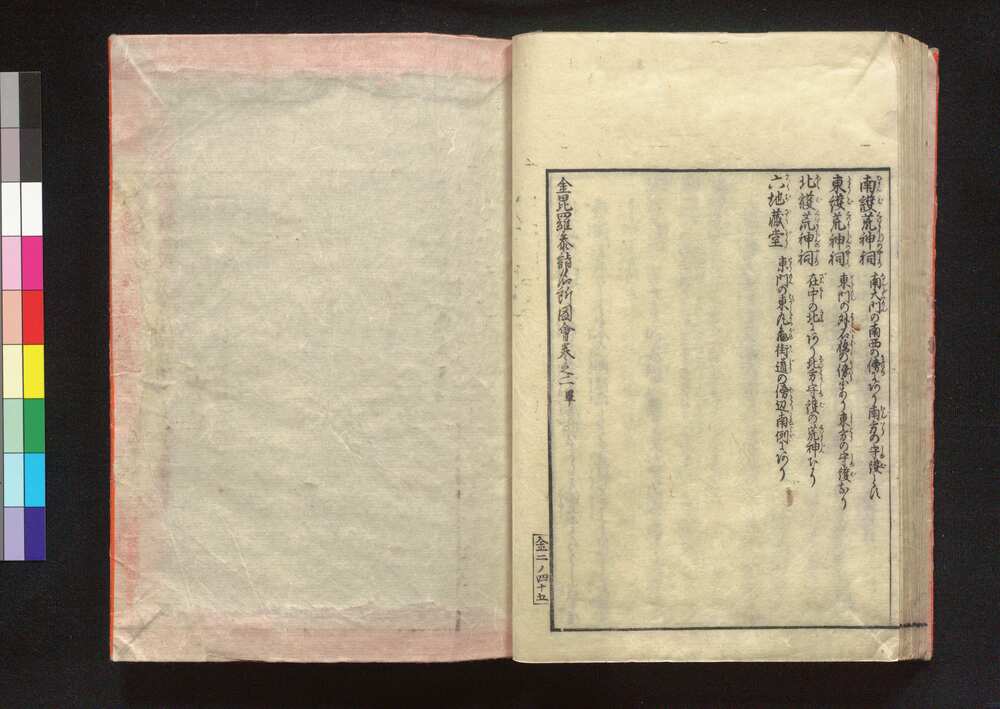 南護荒神祠 南大門の南西の傍にあり南方の守護とす
東護荒神祠 東門の外石檀の傍にあり東方の守護なり
北護荒神祠 在中の北にあり北方守護の荒神なり
六地蔵堂 東門の東丸亀街道の傍辺南側にあり
金毘羅参詣名所図會巻之二畢
金二ノ四十五